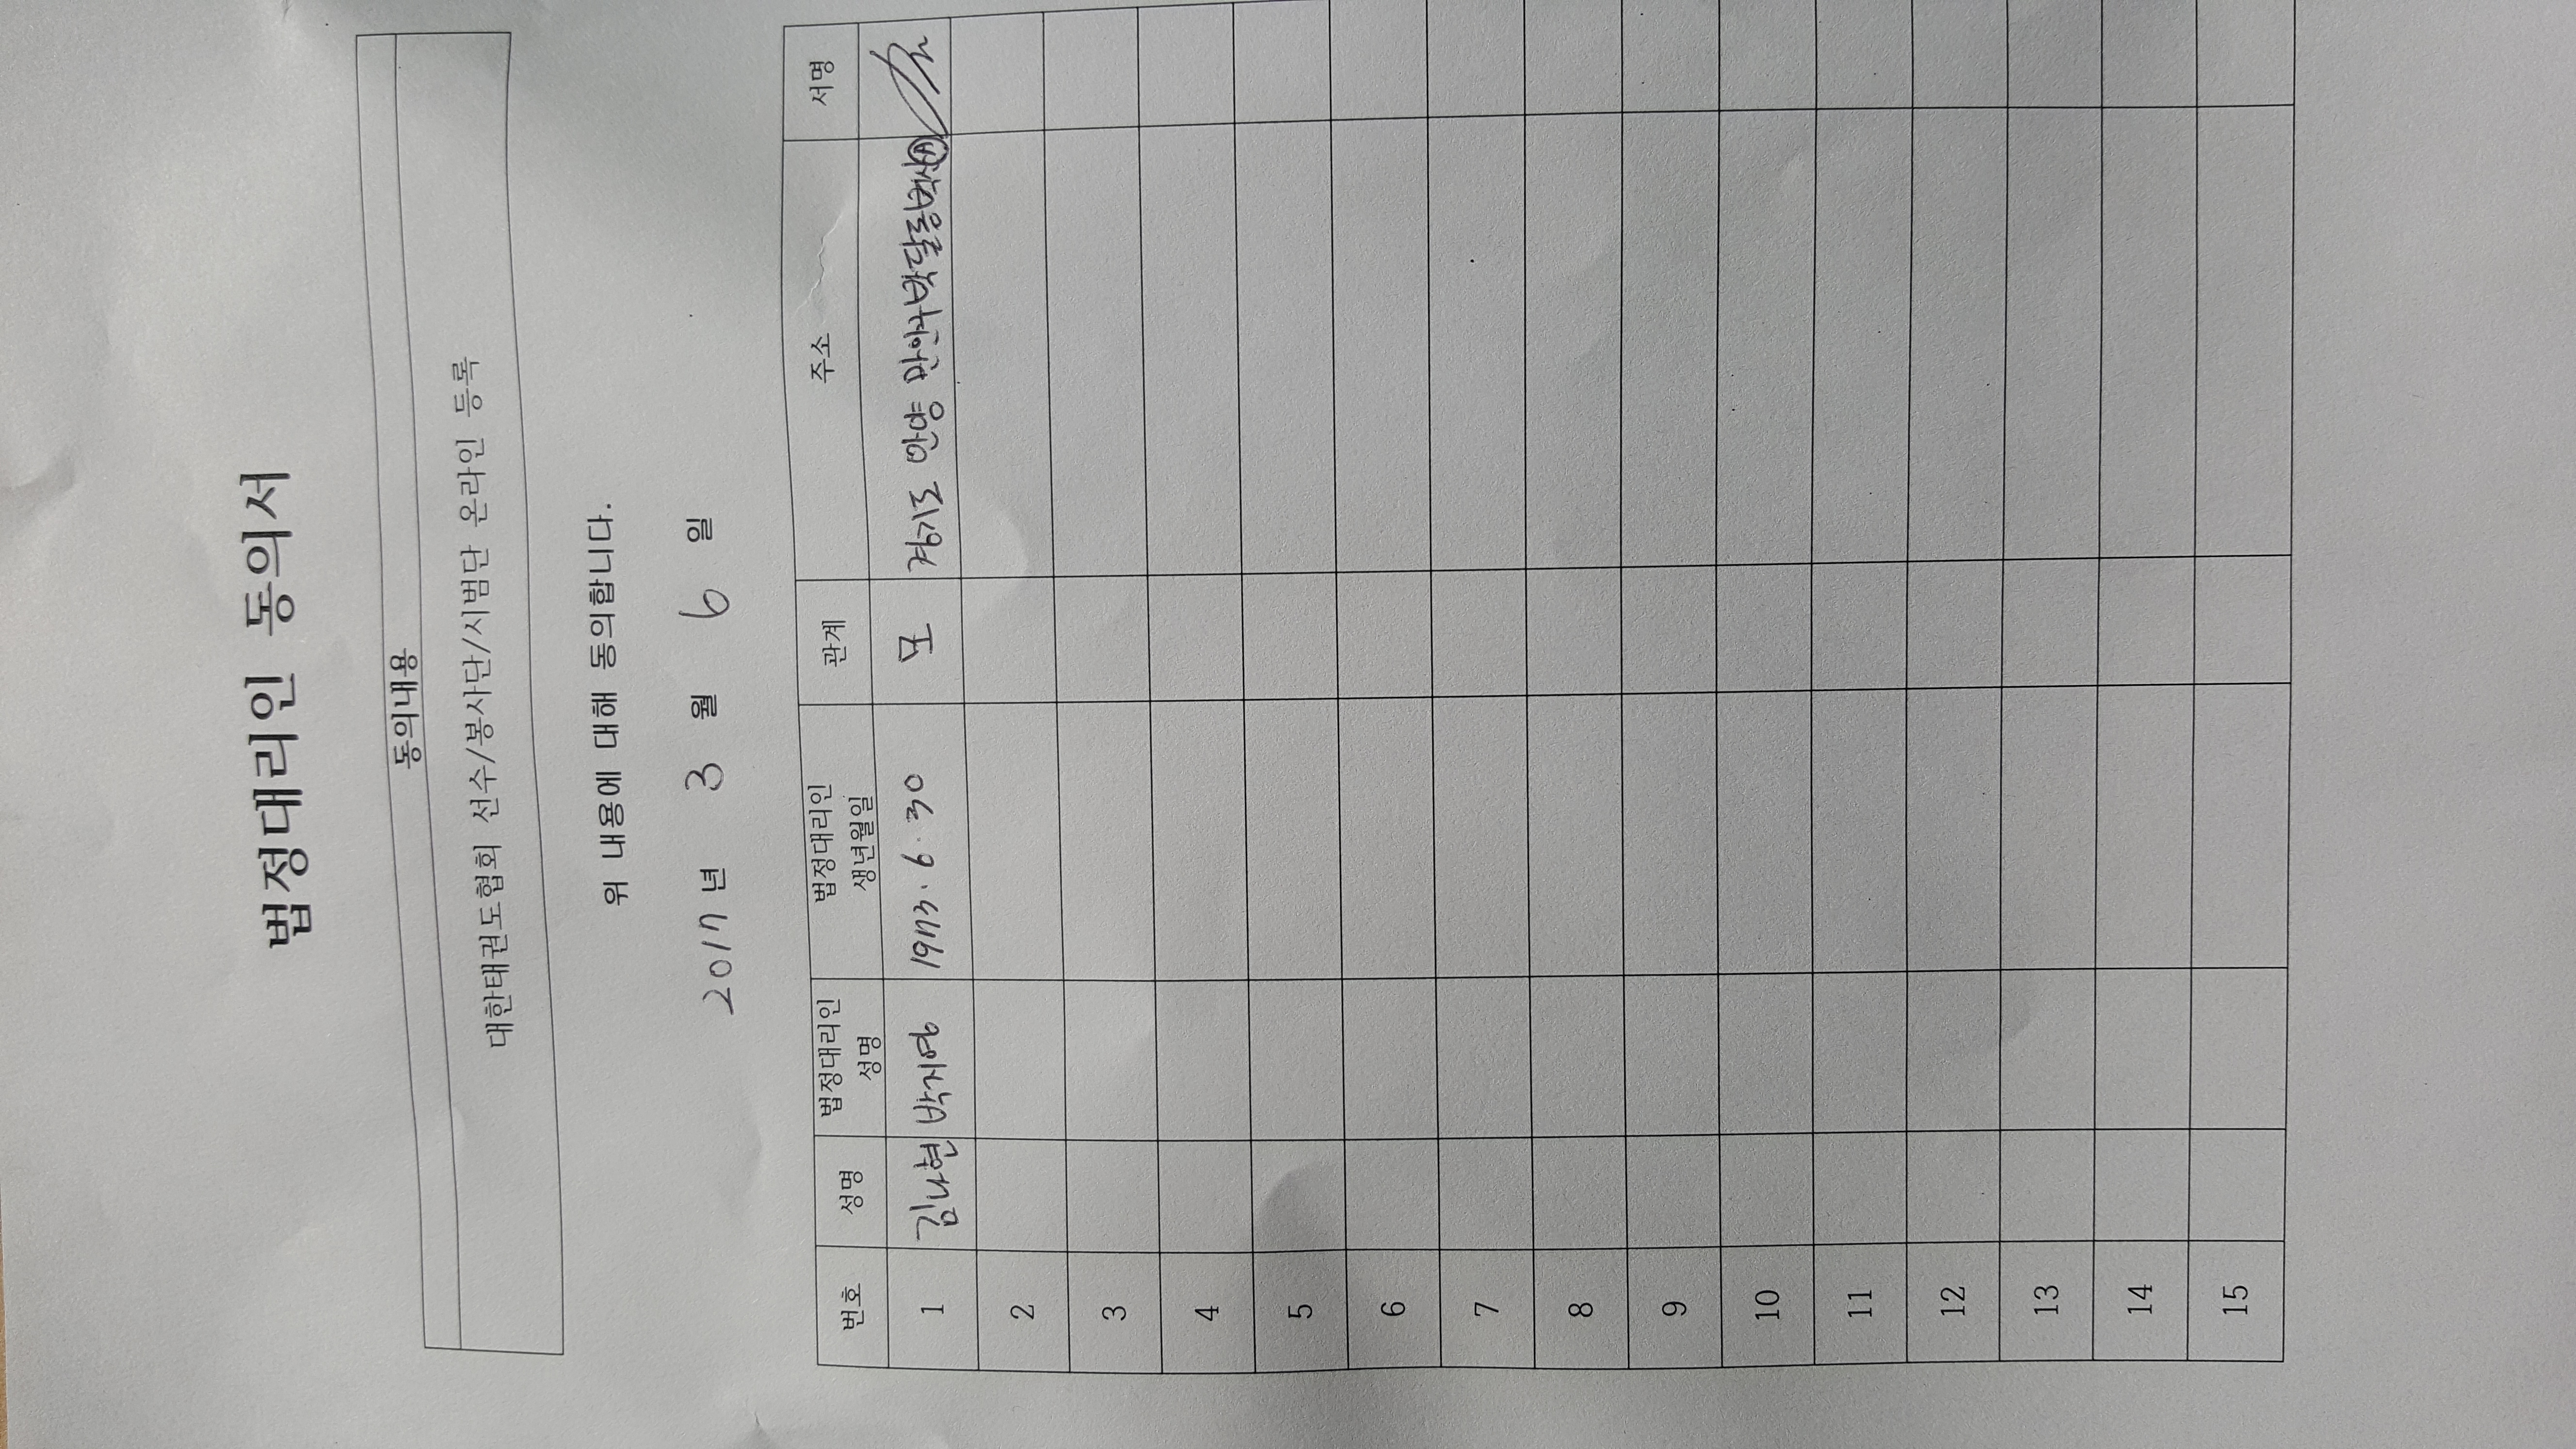 법정대리인 동의서
동의내용
대한태권도협회 선수/봉사단/시범단 온라인 등록
위 내용에 대해 동의합니다.
2017 년 3 월 6 일
번호 성명 법정대리인 성명 법정대리인 생년월일 관계 주소 서명
1 김나현 박지영 1973. 6. 30 모 경기도 안양 만안구 박달동
2
3
4
5
6
7
8
9
10
11
12
13
14
15